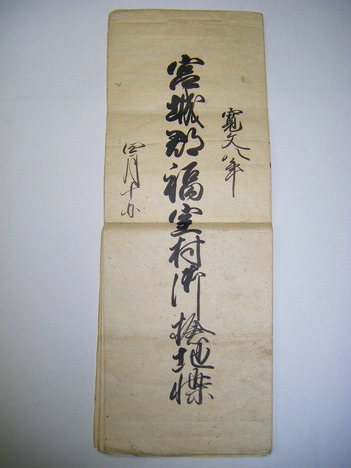 寛文八年
宮城郡福室村御検地帳
四月十日